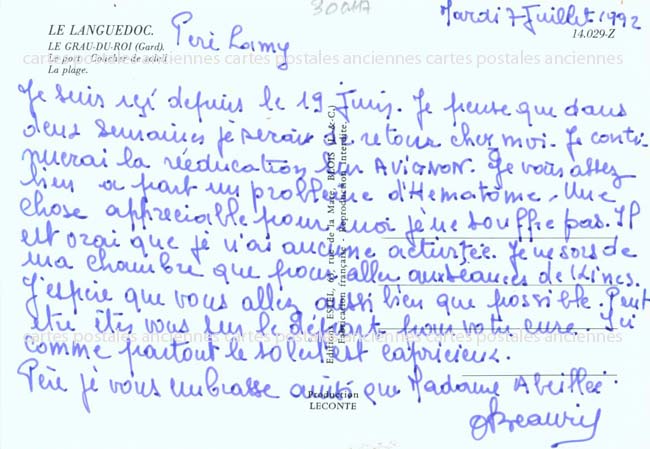 30A117
Mardi 7 Juillet 1992
LE LANGUEDOC.
14.029-Z
LE GRAU-DU-ROI (Gard).
Le port. Coucher de soleil.
La plage.
Père Lamy
cartes postales anciennes cartes postales anciennes cartes postales anciennes cartes postales anciennes
Je suis ici depuis le 19 Juin. Je pense que dans
deux semaines je serais de retour chez moi. Je conti
nuerai la rééducation sur Avignon. Je vais assez
bien a part un problème d'Hematôme. Une
chose appreciable pour moi je ne souffre pas. Il
est vrai que je n'ai aucune activitée. Je ne sors de
ma chambre que pour aller aux séances de Kinés.
J'espère que vous allez aussi bien que possible. Peut
etre êtes vous sur le départ pour votre cure. Ici
cartes postales anciennes cartes postales anciennes cartes postales anciennes cartes postales anciennes
comme partout le soleil est capricieux.
Père je vous embrasse ainsi que Madame Abeillée.
Production
LECONTE
Fabrication française - Reproduction Interdite